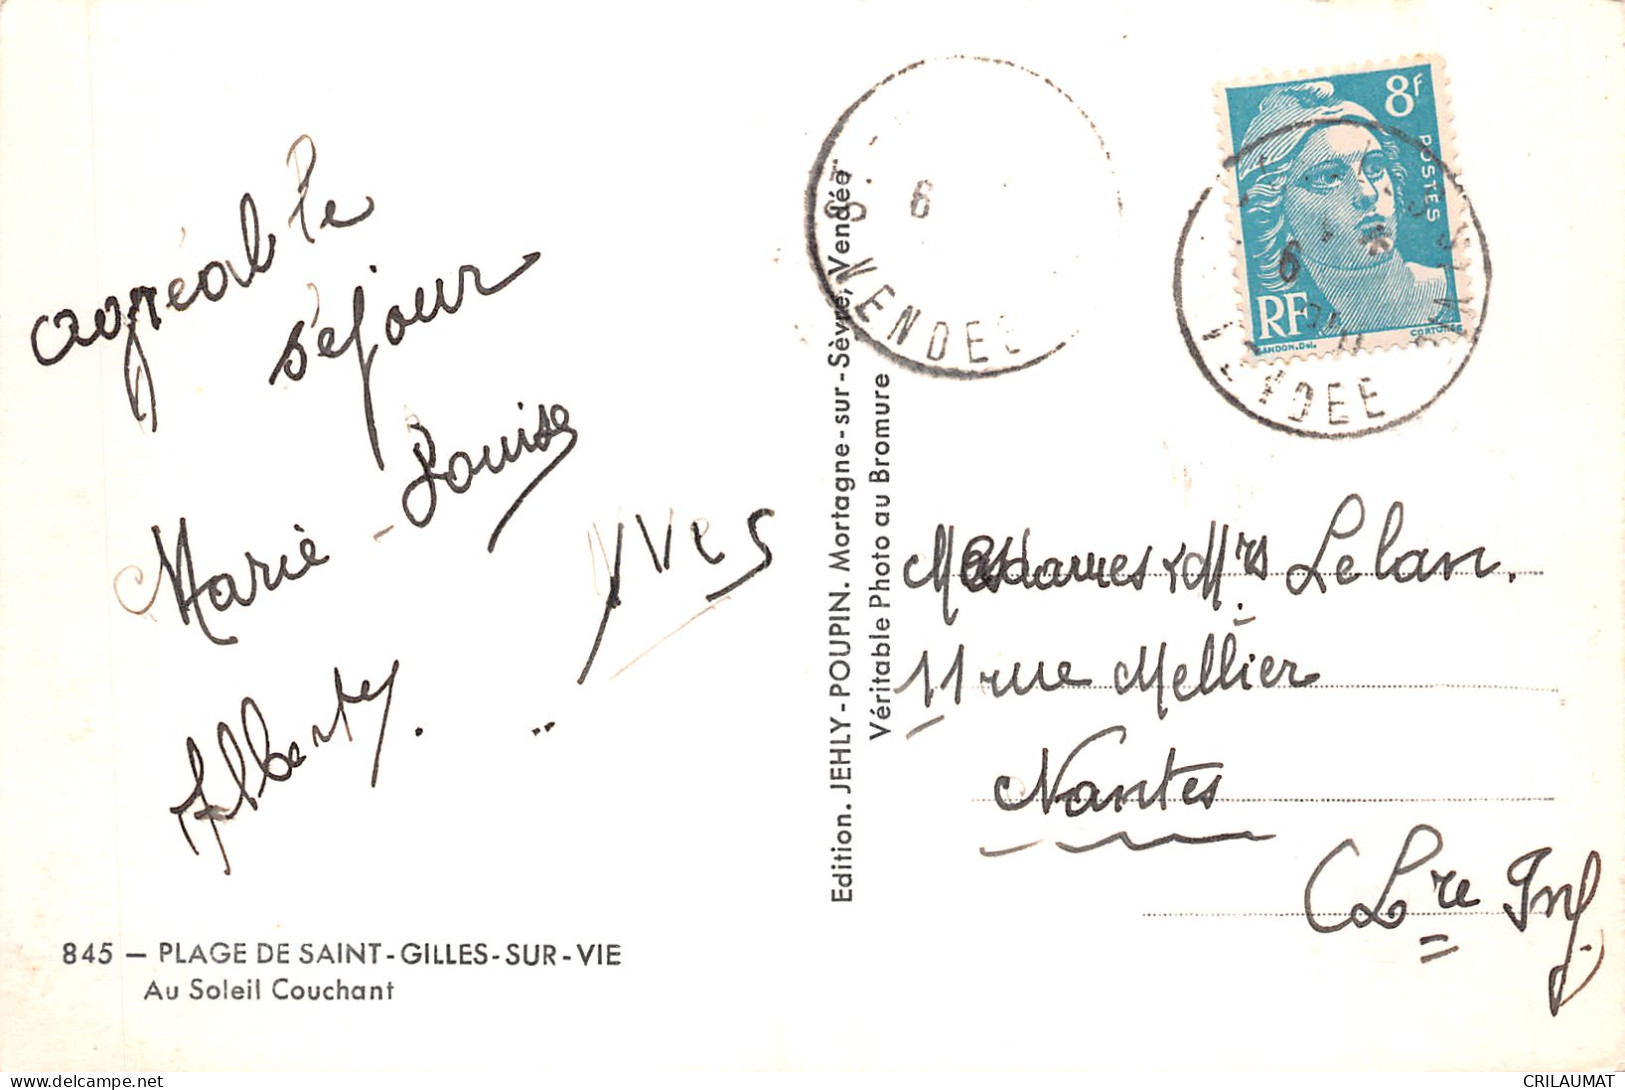 agréable
séjour
Marie-Louise
Yves
Alberte.
845 — PLAGE DE SAINT-GILLES-SUR-VIE
Au Soleil Couchant
Edition. JEHLY-POUPIN. Mortagne-sur-Sèvre, Vendée
Véritable Photo au Bromure
6
VENDEE
8F
POSTES
RF
GANDON.Del.
CORTOT
6
VENDEE
Mesdames & Mrs Lelan.
11 rue Mellier
Nantes
(Lre Inf.
CRILAUMAT